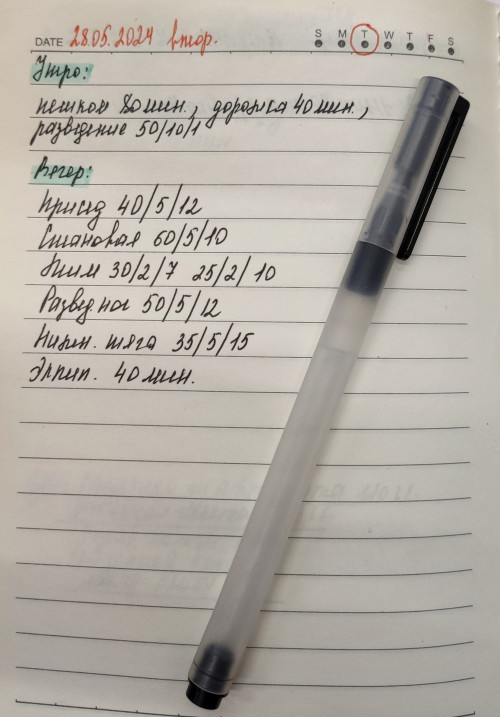 DATE 28.05.2024 втор. S M T W T F S
Утро:
пешком 80 мин., дорожка 40 мин.,
разведение 50/10/1
Вечер:
Присед 40/5/12
Становая 60/5/10
Жим 30/2/7 25/2/10
Развед. ног 50/5/12
Нижн. тяга 35/5/15
Эллип. 40 мин.